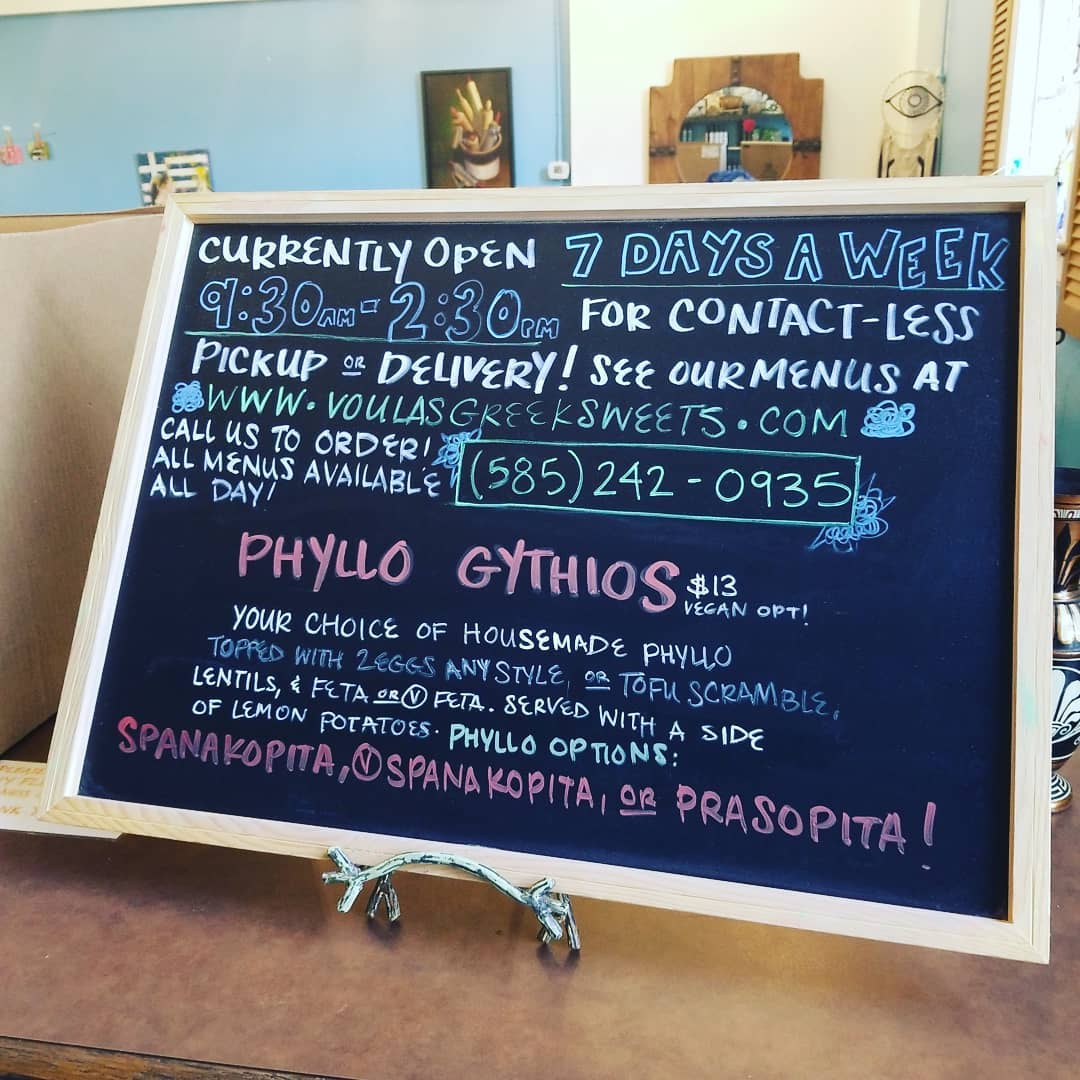 CURRENTLY OPEN 7 DAYS A WEEK
9:30AM - 2:30PM FOR CONTACT-LESS
PICKUP OR DELIVERY! SEE OUR MENUS AT
WWW.VOULASGREEKSWEETS.COM
CALL US TO ORDER!
ALL MENUS AVAILABLE
ALL DAY!
(585) 242-0935
PHYLLO GYTHIOS $13
VEGAN OPT!
YOUR CHOICE OF HOUSEMADE PHYLLO
TOPPED WITH 2 EGGS ANY STYLE, OR TOFU SCRAMBLE,
LENTILS, & FETA OR Ⓥ FETA. SERVED WITH A SIDE
OF LEMON POTATOES. PHYLLO OPTIONS:
SPANAKOPITA, Ⓥ SPANAKOPITA, OR PRASOPITA!